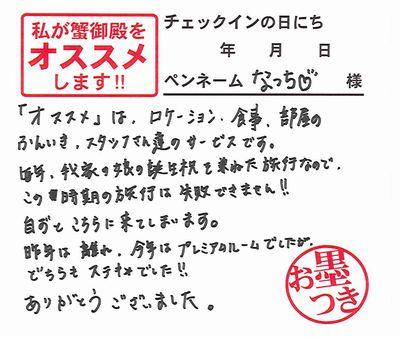 私が蟹御殿を
オススメ
します!!
チェックインの日にち
年 月 日
ペンネーム なっち♡ 様
「オススメ」は、ロケーション、食事、部屋の
ふんいき、スタッフさん達のサービスです。
毎年、我家の娘の誕生祝を兼ねた旅行なので、
この時期の旅行は失敗できません!!
自ずとこちらに来てしまいます。
昨年は離れ、今年はプレミアムルームでしたが、
どちらもステキでした!!
ありがとうございました。
お墨つき